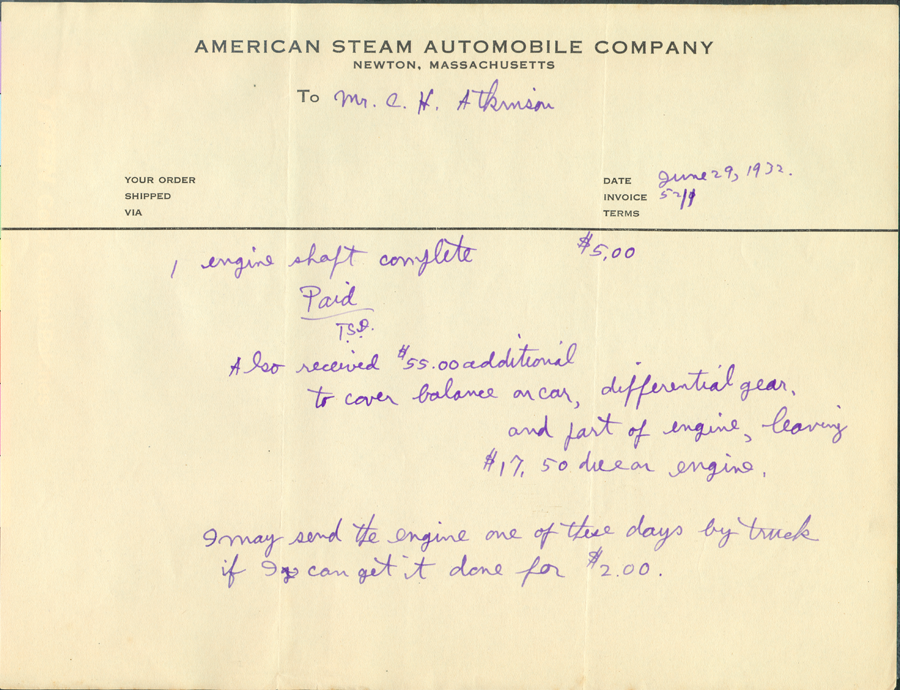 AMERICAN STEAM AUTOMOBILE COMPANY
NEWTON, MASSACHUSETTS
TO Mr. C. H. Atkinson
YOUR ORDER
SHIPPED
VIA
DATE June 29, 1932.
INVOICE
TERMS
1 engine shaft complete $5.00
Paid
Also received $55.00 additional
to cover balance on car, differential gear,
and part of engine, leaving
$17.50 due on engine.
I may send the engine one of these days by truck
if I can get it done for $2.00.